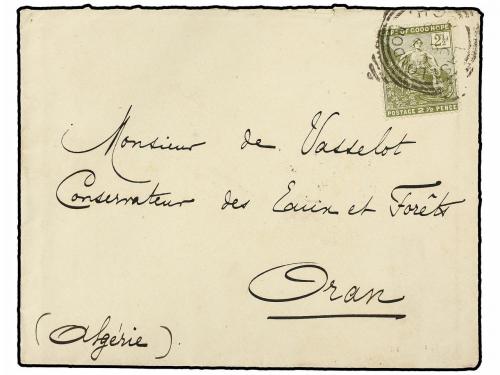 OF GOOD HOPE
2½
POSTAGE 2½ PENCE
Monsieur de Vasselot
Conservateur des Eaux et Forêts
Oran
(Algérie)